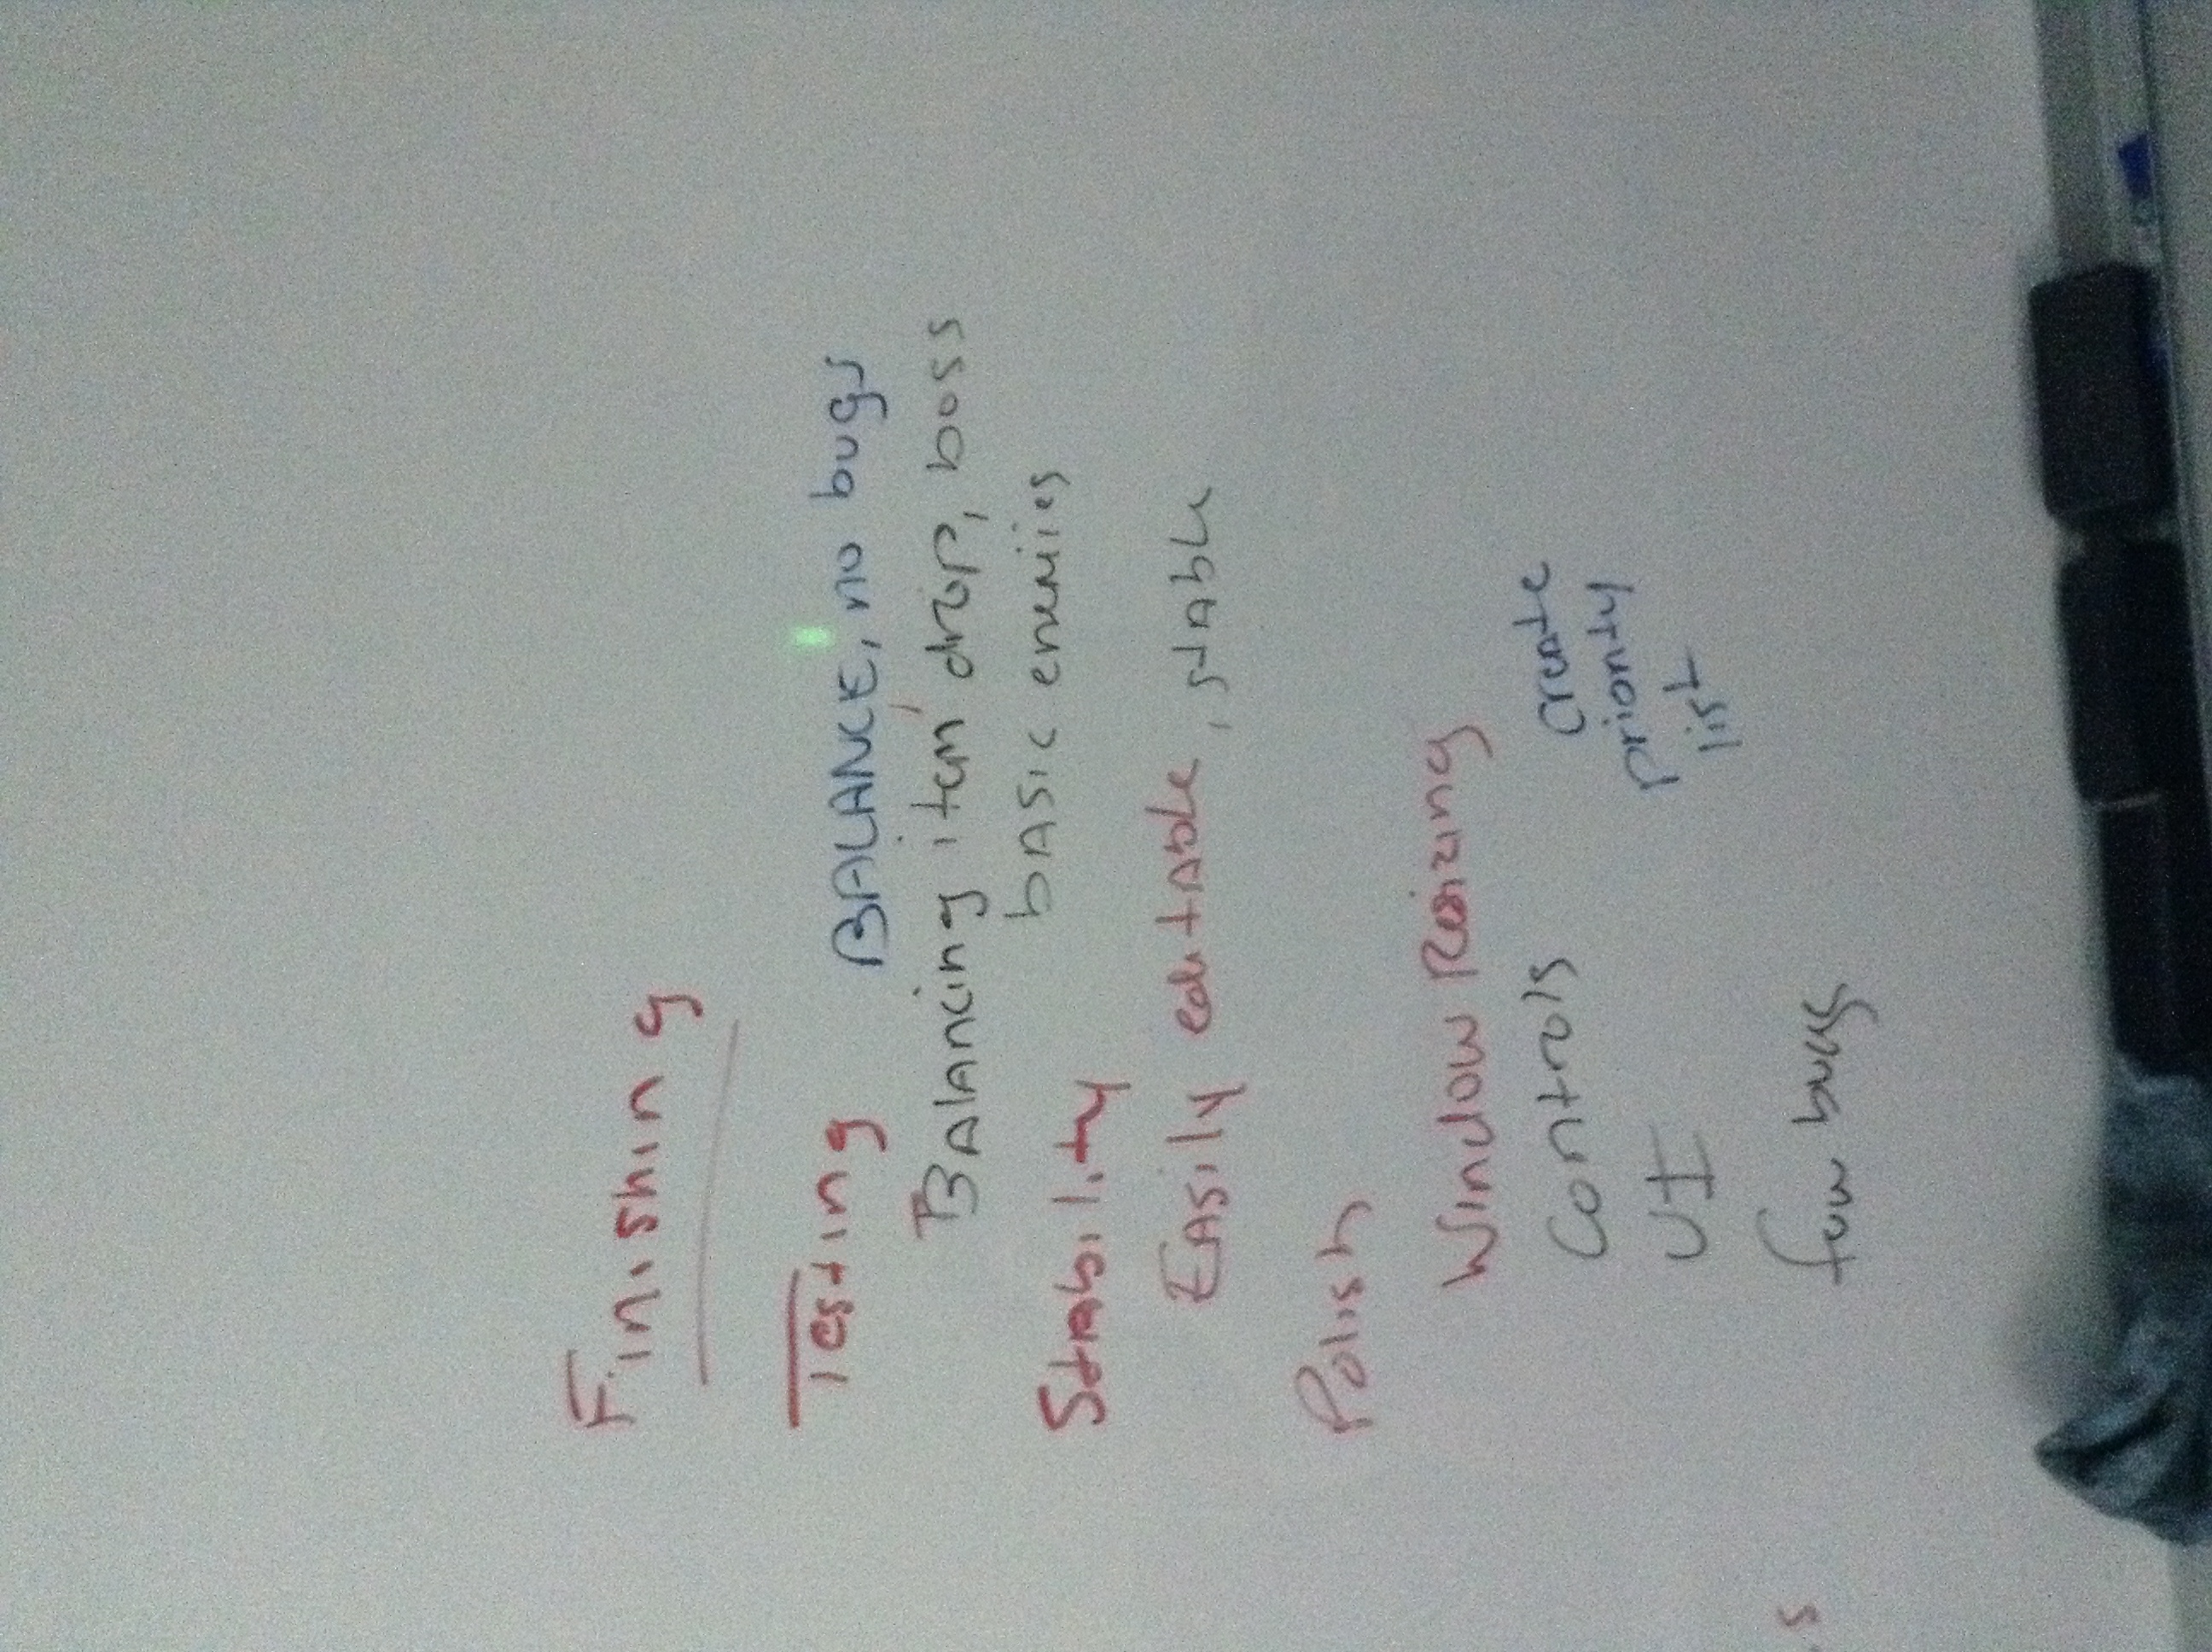 Finishing
Testing BALANCE, no bugs
Balancing item drop, boss
basic enemiies
Stability
Easily editable, stable
Polish
Window Resizing
Controls
create
priority
UI
list
few bugs
s